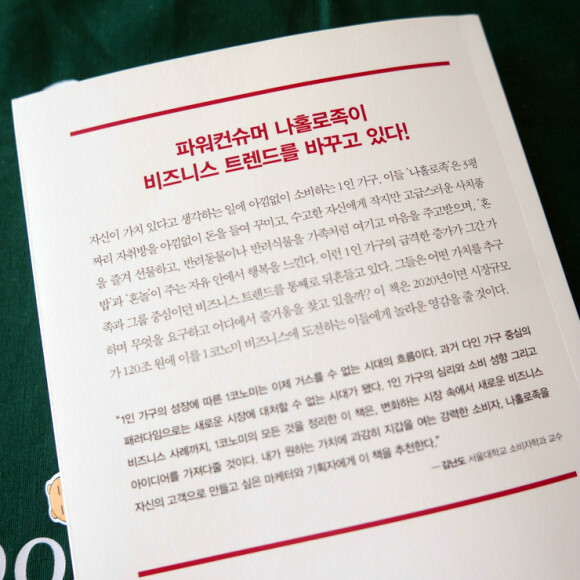 파워컨슈머 나홀로족이
비즈니스 트렌드를 바꾸고 있다!
자신이 가치 있다고 생각하는 일에 아낌없이 소비하는 1인 가구. 이들 '나홀로족'은 3평
짜리 자취방을 아낌없이 돈을 들여 꾸미고, 수고한 자신에게 작지만 고급스러운 사치품
을 즐겨 선물하고, 반려동물이나 반려식물을 가족처럼 여기고 마음을 주고받으며, '혼
밥'과 '혼놀'이 주는 자유 안에서 행복을 느낀다. 이런 1인 가구의 급격한 증가가 그간 가
족과 그룹 중심이던 비즈니스 트렌드를 통째로 뒤흔들고 있다. 그들은 어떤 가치를 추구
하며 무엇을 요구하고 어디에서 즐거움을 찾고 있을까? 이 책은 2020년이면 시장규모
가 120조 원에 이를 1코노미 비즈니스에 도전하는 이들에게 놀라운 영감을 줄 것이다.
"1인 가구의 성장에 따른 1코노미는 이제 거스를 수 없는 시대의 흐름이다. 과거 다인 가구 중심의
패러다임으로는 새로운 시장에 대처할 수 없는 시대가 됐다. 1인 가구의 심리와 소비 성향 그리고
비즈니스 사례까지, 1코노미의 모든 것을 정리한 이 책은, 변화하는 시장 속에서 새로운 비즈니스
아이디어를 가져다줄 것이다. 내가 원하는 가치에 과감히 지갑을 여는 강력한 소비자, 나홀로족을
자신의 고객으로 만들고 싶은 마케터와 기획자에게 이 책을 추천한다."
— 김난도 서울대학교 소비자학과 교수